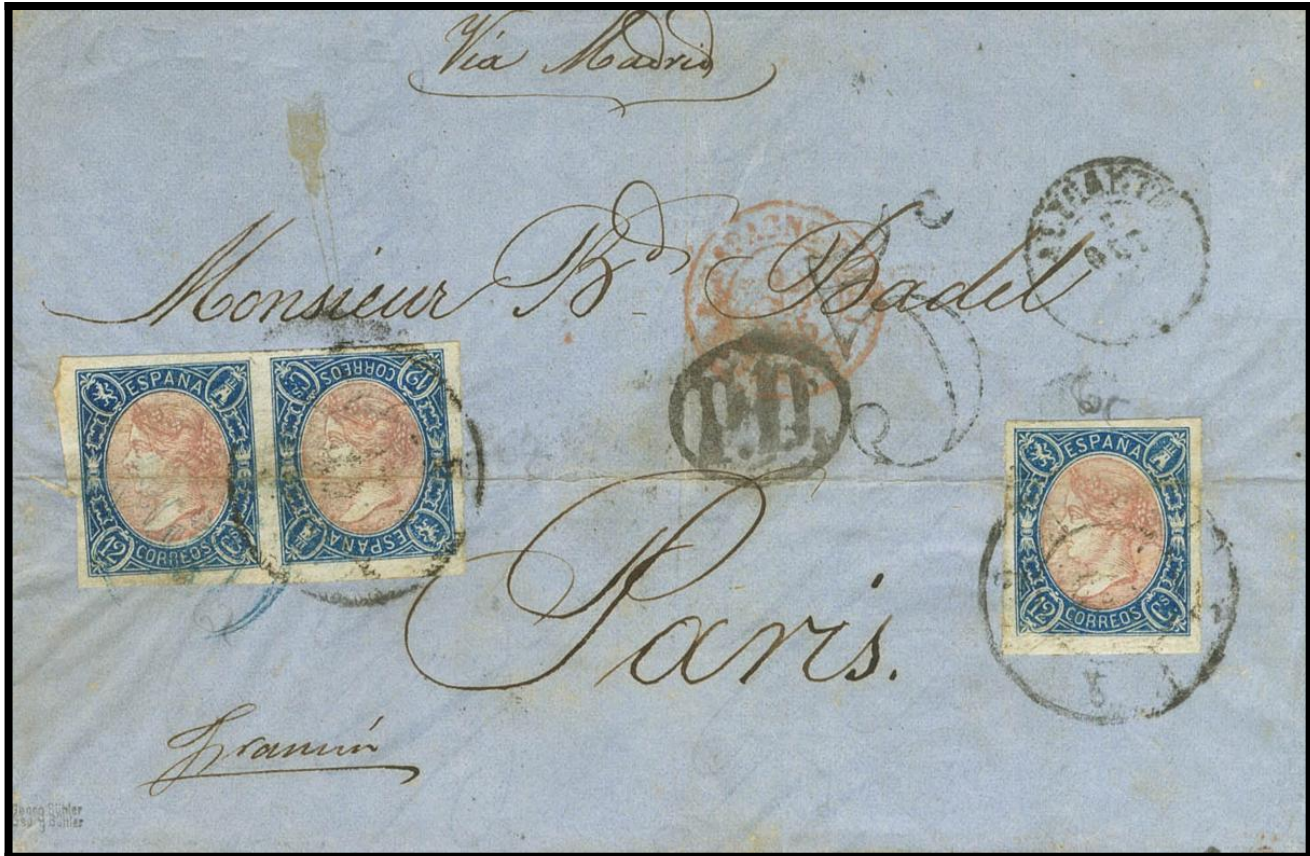 Via Madrid
Monsieur Bd Badel
P.D.
ESPANA
12 CORREOS Cs
ESPANA
12 CORREOS Cs
ESPANA
12 CORREOS Cs
Paris.
Georg Bühler
Georg Bühler